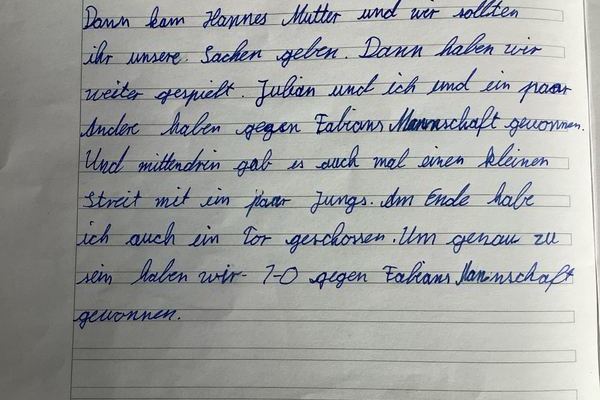 Dann kam Hannes Mutter und wir sollten
ihr unsere Sachen geben. Dann haben wir
weiter gespielt. Julian und ich und ein paar
Andere haben gegen Fabians Mannschaft gewonnen.
Und mittendrin gab es auch mal einen kleinen
Streit mit ein paar Jungs. Am Ende habe
ich auch ein Tor geschossen. Um genau zu
sein haben wir 7-0 gegen Fabians Mannschaft
gewonnen.